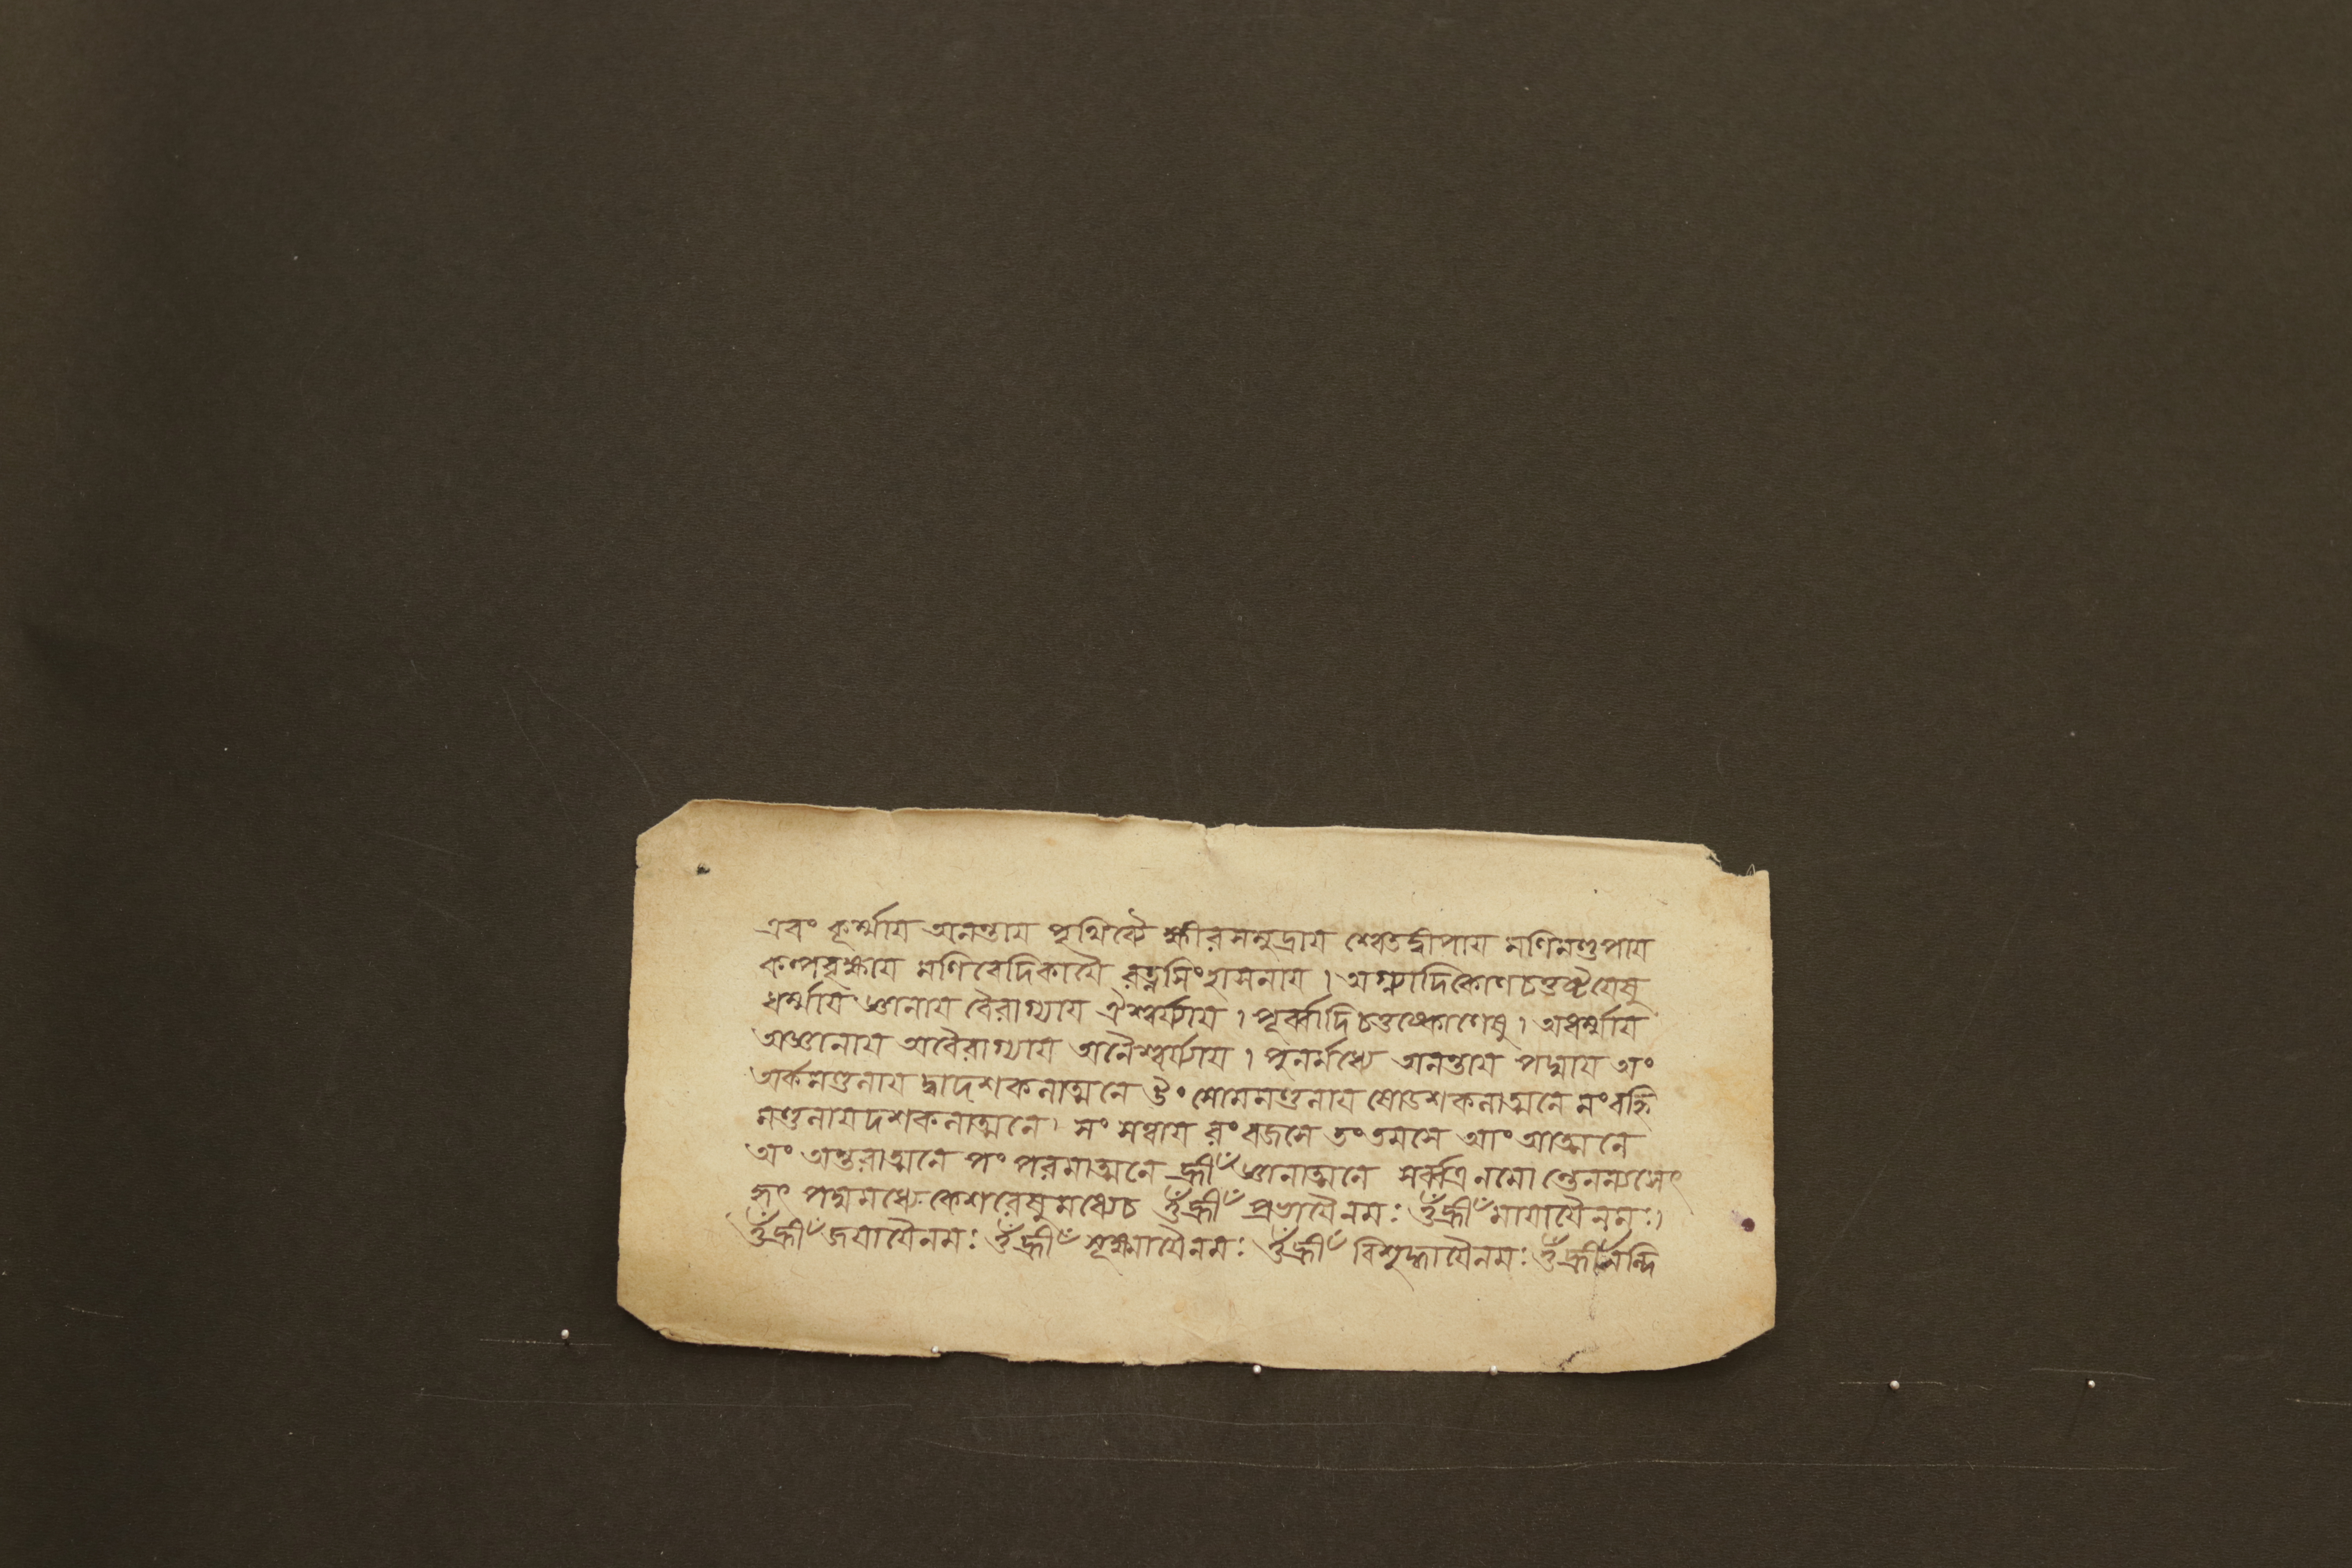 এবং কূর্ম্মায় অনন্তায় পৃথিব্যৈ ক্ষীরসমুদ্রায় শ্বেতদ্বীপায় মণিমণ্ডপায়
কল্পবৃক্ষায় মণিবেদিকায়ৈ রত্নসিংহাসনায় । অগ্ন্যাদিকোণচতুষ্টয়েষু
ধর্ম্মায় জ্ঞানায় বৈরাগ্যায় ঐশ্বর্য্যায় । পূর্ব্বাদিচতুষ্কোণেষু । অধর্ম্মায়
অজ্ঞানায় অবৈরাগ্যায় অনৈশ্বর্য্যায় । পুনর্মধ্যে অনন্তায় পদ্মায় অং
অর্কমণ্ডলায় দ্বাদশকলাত্মনে উং সোমমণ্ডলায় ষোডশকলাত্মনে মং বহ্নি
মণ্ডলায় দশকলাত্মনে । সং সত্বায় রং রজসে তং তমসে আং আত্মনে
অং অন্তরাত্মনে পং পরমাত্মনে হ্রীঁ জ্ঞানাত্মনে সর্ব্বত্র নমোন্তেন ন্যসেৎ
হৃৎ পদ্মমধ্যে কেশরেষু মধ্যেচ ওঁ হ্রীঁ প্রভায়ৈ নমঃ ওঁ হ্রীঁ মায়ায়ৈ নমঃ ।
ওঁ হ্রীঁ জয়ায়ৈ নমঃ ওঁ হ্রীঁ শূক্ষ্মায়ৈ নমঃ ওঁ হ্রীঁ বিশুদ্ধায়ৈ নমঃ ওঁ হ্রীঁ নন্দি